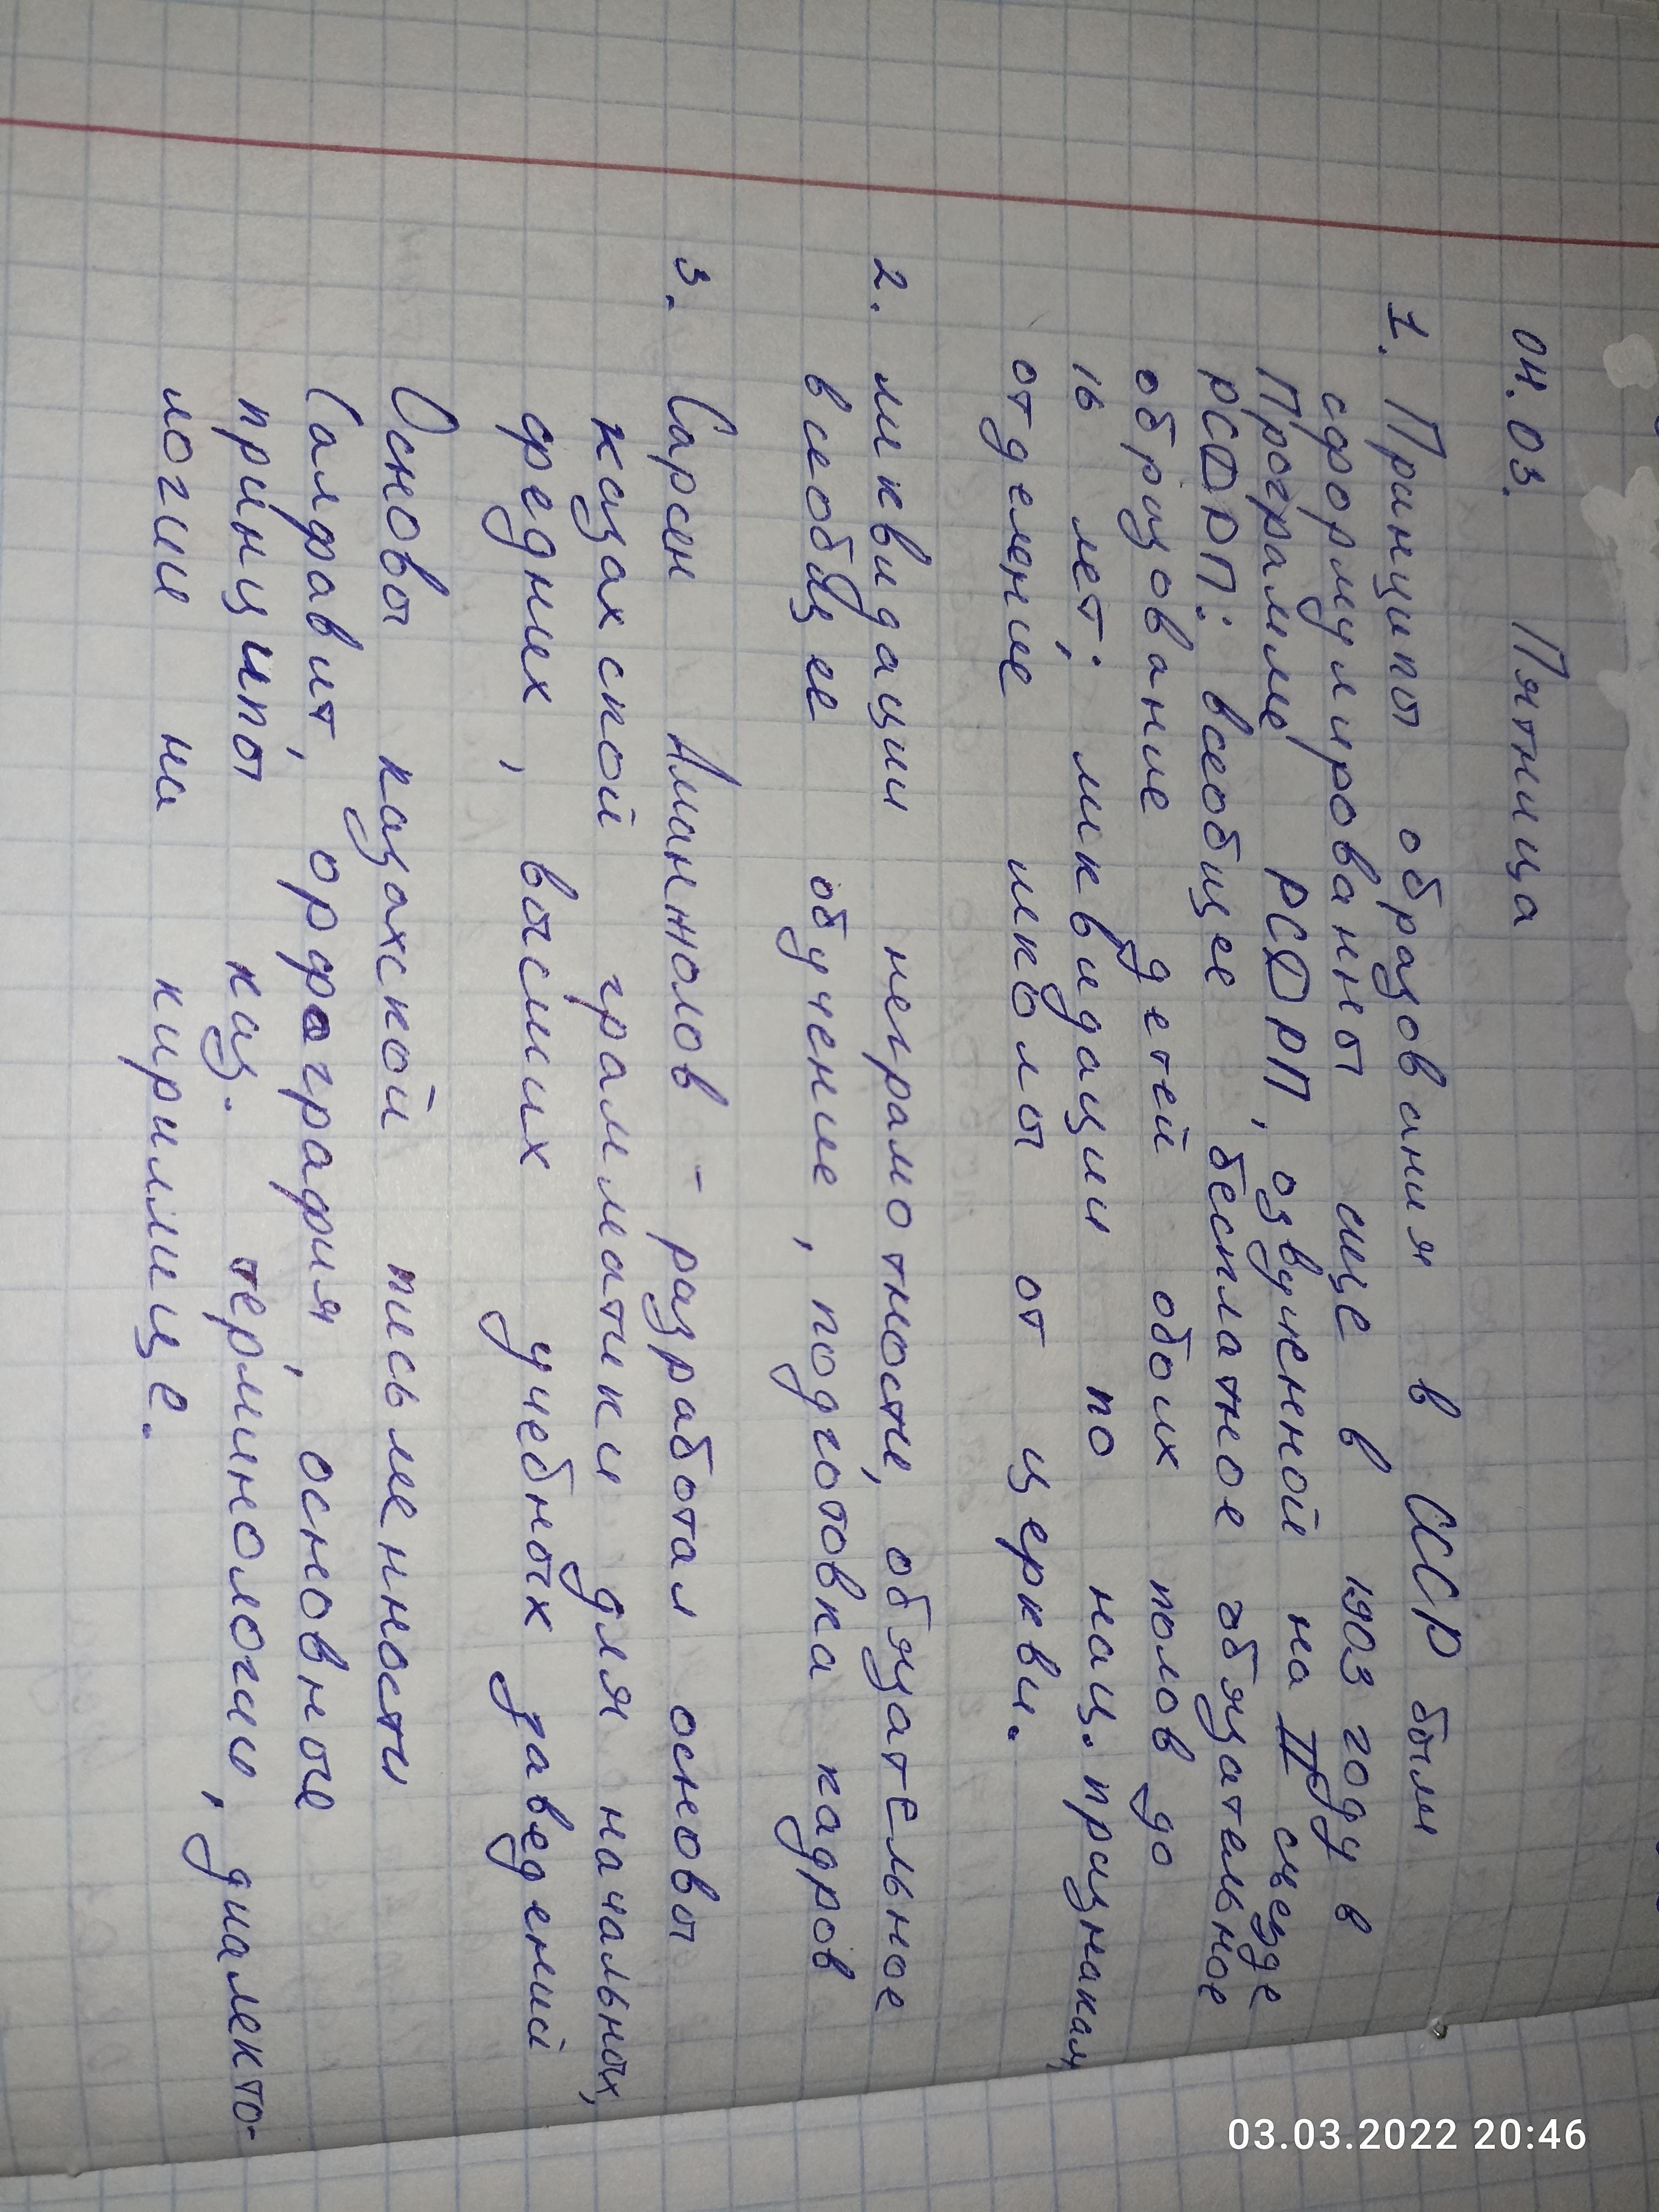 04.03. Пятница
1. Принципы образования в СССР были
сформулированы еще в 1903 году в
Программе РСДРП, озвученной на II съезде
РСДРП: всеобщее бесплатное обязательное
образование детей обоих полов до
16 лет; ликвидации по нац. признакам,
отделение школы от церкви.
2. ликвидации неграмотности, обязательное
всеобщее обучение, подготовка кадров
3. Сарсен Аманжолов - разработал основы
казахской грамматики для начальных,
средних, высших учебных заведений
Основы казахской письменности
(алфавит, орфаграфия, основные
принципы каз. терминологии, диалекто-
логии на кириллице.
03.03.2022 20:46